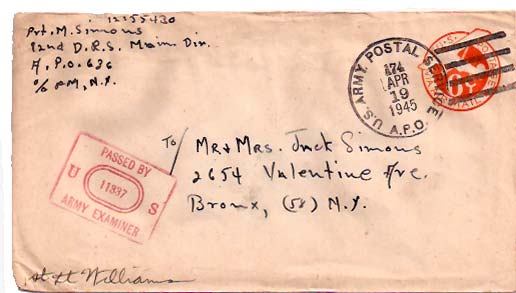 12155430
Pvt. M. Simons
82nd D.R.S. Main Div.
A.P.O. 636
c/o PM, N.Y.
U.S. ARMY POSTAL SERVICE
174
APR
19
1945
A.P.O.
U.S. POSTAGE
6¢
AIR MAIL
PASSED BY
U 11337 S
ARMY EXAMINER
To/
Mr & Mrs. Jack Simons
2654 Valentine Ave.
Bronx, (58) N.Y.
Williams